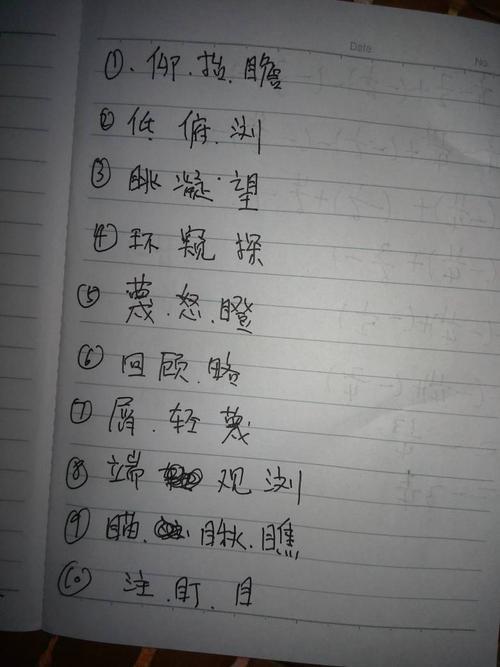 Date.
No.
①. 仰. 抬. 瞻
② 低 俯. 浏
③ 眺 凝. 望
④ 环 窥 探
⑤ 蔑. 怒. 瞪
⑥ 回 顾. 略
⑦ 屑. 轻 蔑
⑧ 端 观 浏
⑨ 瞄. 瞅. 瞧
⑩ 注. 盯. 目